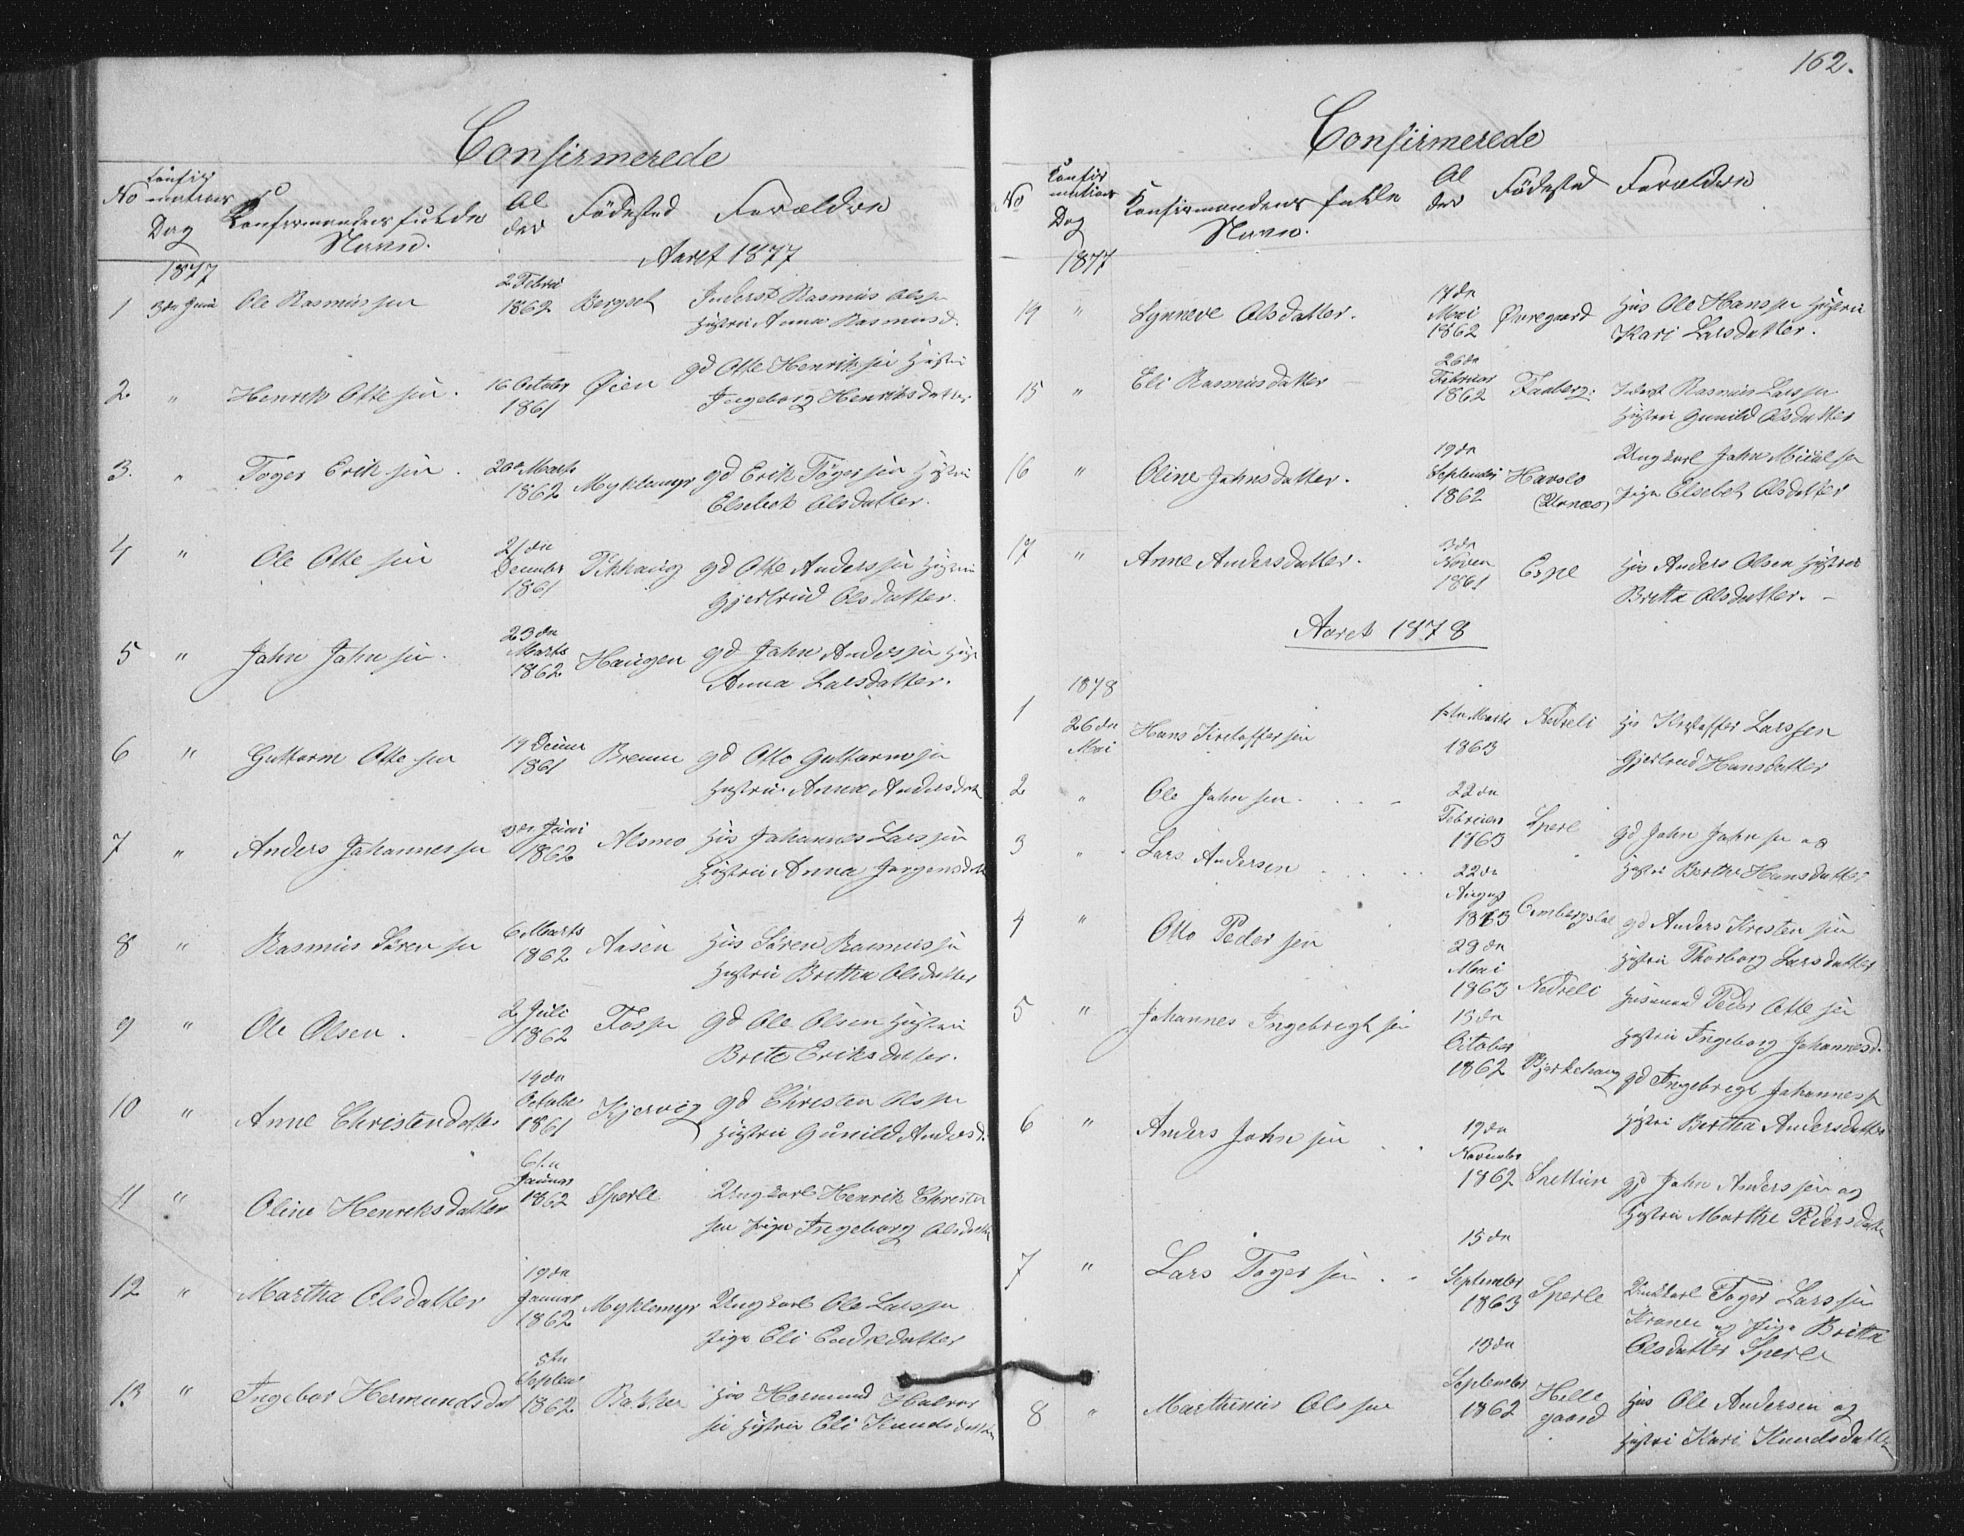 Confirmerede
No
Confir
mations
Dag
Konfirmandens fulde
Navn.
Al
der
Födested
Forældre
1877
Aaret 1877
1 3die Juni Ole Rasmussen 2 Febru 1862 Berget Inderst Rasmus Olsen
Hustru Anna Rasmusd.
2 " Henrik Ottesen. 16 October 1861 Øien gd Otte Henriksen Hustru
Ingeborg Henriksdatter
3. " Toger Eriksen. 20de Marts 1862 Myklemyr gd Erik Tögersen Hustru
Elsebet Olsdatter.
4 " Ole Ottesen 21de December 1861 gd Otte Anderssen Hustru
Gjertrud Olsdatter.
5 " Jahn Jahnsen. 23de Marts 1862 Haugen gd Jahn Anderssen Hust
Anna Larsdatter.
6 " Guttorm Ottesen 19 Decembr 1861 Bremer gd Otto Guttormsen
Hustru Anna Andersdat
7 " Anders Johannessen Juni 1862 Alsmo Hus Johannes Larssen
Hustru Anna Jorgensdat
8 " Rasmus Sörensen 6 Marts 1862 Aasen Hus Sören Rasmussen
Hustru Britha Olsdatter
9 " Ole Olsen. 2 Juli 1862 Fosse gd Ole Olsen Hustru
Brite Eriksdatter.
10 " Anne Christendatter 14de October 1861 Kjervig gd Christen Olsen
Hustru Gunild Andersd.
11 " Oline Henriksdatter 6te Januar 1862 Sperle Ungkarl Henrik Christen
sen Pige Ingeborg Olsdatte
12 " Martha Olsdatter 19de Januar 1862 Myklemyr Ungkarl Ole Larssen
Pige Eli Endredatter
13 " Ingebor Hermundsdat 5te Septem 1862 Bakken Hus Hermund Halvor
sen Hustru Eli Knudsdatter
162.
Confirmerede
No
Confir
mations
Dag
Konfirmandens fulde
Navn.
Al
der
Födested
Forældre
1877
14 " Synneve Olsdatter. 17de Mai 1862 Øvregaard Hus Ole Hanssen Hustru
Kari Larsdatter.
15 " Eli Rasmusdatter 26de Februar 1862 Faaberg. Inderst Rasmus Larssen
Hustru Gunild Olsdatter
16 " Oline Jahnsdatter. 19de September 1862 Havslo
(Urnæs) Ungkarl Jahn Mikelsen
Pige Elsebet Olsdatter
17 " Anne Andersdatter. 3de Novem 1861 Espe Hus Anders Olsen Hustru
Britta Olsdatter.
Aaret 1878
1878
1 26de Mai Hans Kristoffersen Marts 1863 Nedreli Hus Kristoffer Larssen
Gjertrud Hansdatter
2 " Ole Jahnsen. 22de Februar 1863 Sperl gd Jahn Jahnsen og
Hustru Berthe Hansdatter
3 " Lars Andersen 22de August 1863 gd Anders Kristensen
Hustru Thorborg Larsdatter
4 " Otto Pedersen 29de Mai 1863 Nedreli Husmand Peder Ottesen
Hustru Ingeborg Johannesd.
5 " Johannes Ingebrigtsen 15de October 1862 Bjørkehaug gd Ingebrigt Johannessen
Hustru Bertha Andersdatter
6 " Anders Jahnsen 19de November 1862 Snettun gd Jahn Anderssen og
Hustru Marthe Pedersdatter
7 " Lars Togersen. 15de September 1863 Sperle Toger Larssen
Kroken og Pige Britta
Olsdatter Sperle
8 " Marthinus Olssen 13de September 1862 Helle
gaard Hus Ole Andersen og
Hustru Kari Knudsdatter